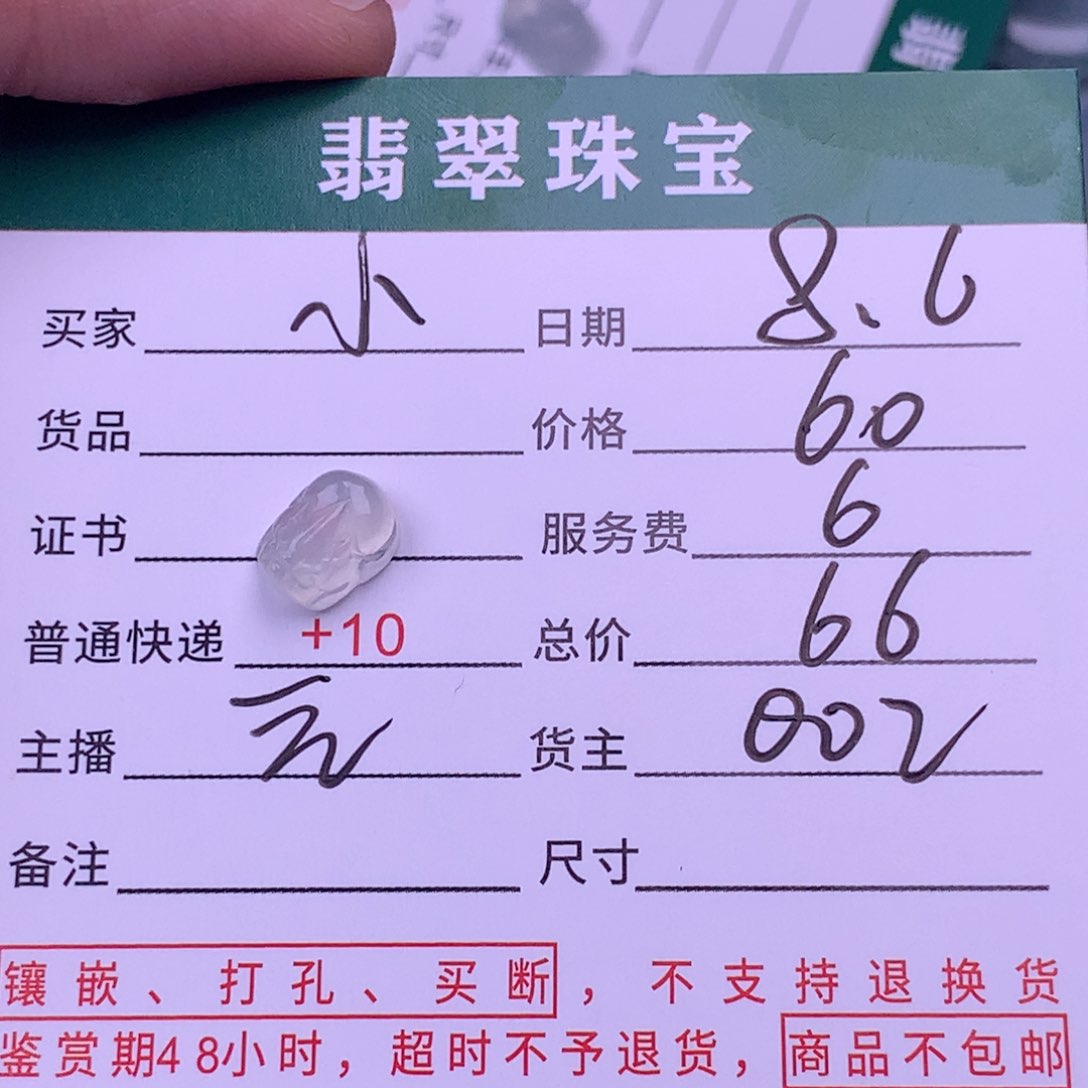 翡翠珠宝
买家 小 日期 8.6
货品 价格 60
证书 服务费 6
普通快递 +10 总价 66
主播 元 货主 002
备注 尺寸
镶嵌、打孔、买断，不支持退换货
鉴赏期48小时，超时不予退货，商品不包邮